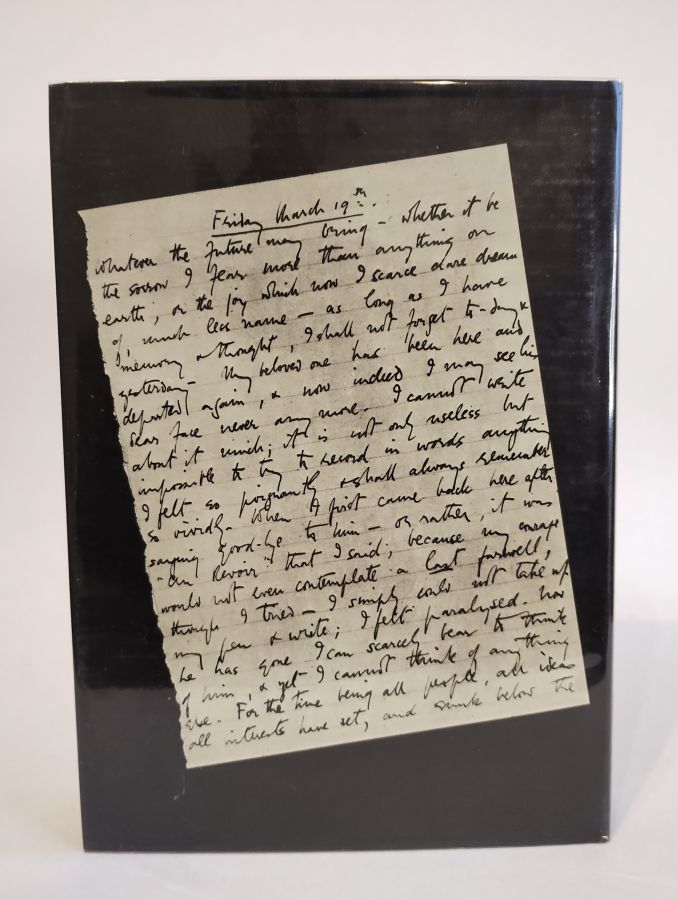 Friday March 19th.
whatever the future may bring - whether it be
the sorrow I fear more than anything on
earth, or the joy which now I scarce dare dream
of, much less name - as long as I have
memory & thought, I shall not forget to-day &
yesterday - My beloved one has been here and
departed again, & now indeed I may see his
dear face never any more. I cannot write
about it much; it is not only useless but
impossible to try to record in words anything
I felt so poignantly & shall always remember
so vividly. When I first came back here after
saying good-bye to him - or rather, it was
"Au Revoir" that I said; because my courage
would not even contemplate a last farewell,
though I tried - I simply could not take up
my pen & write; I felt paralysed. Now
he has gone I can scarcely bear to think
of him, & yet I cannot think of anything
else. For the time being all people, all ideas
all interests have set, and sunk below the